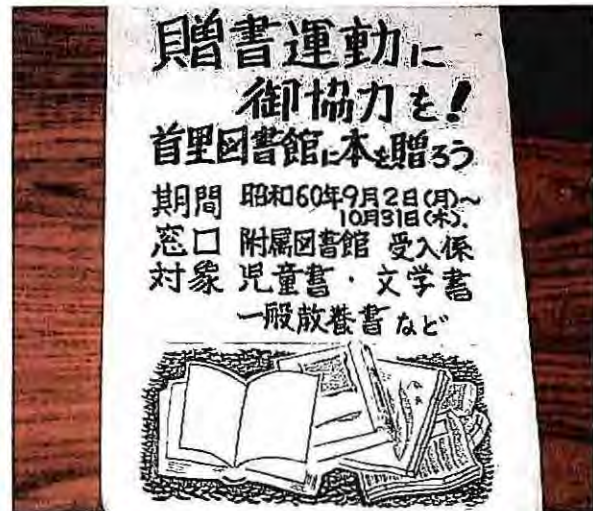 贈書運動に
御協力を!
首里図書館に本を贈ろう
期間 昭和60年9月2日(月)~
10月31日(木).
窓口 附属図書館 受入係
対象 児童書・文学書
一般教養書など